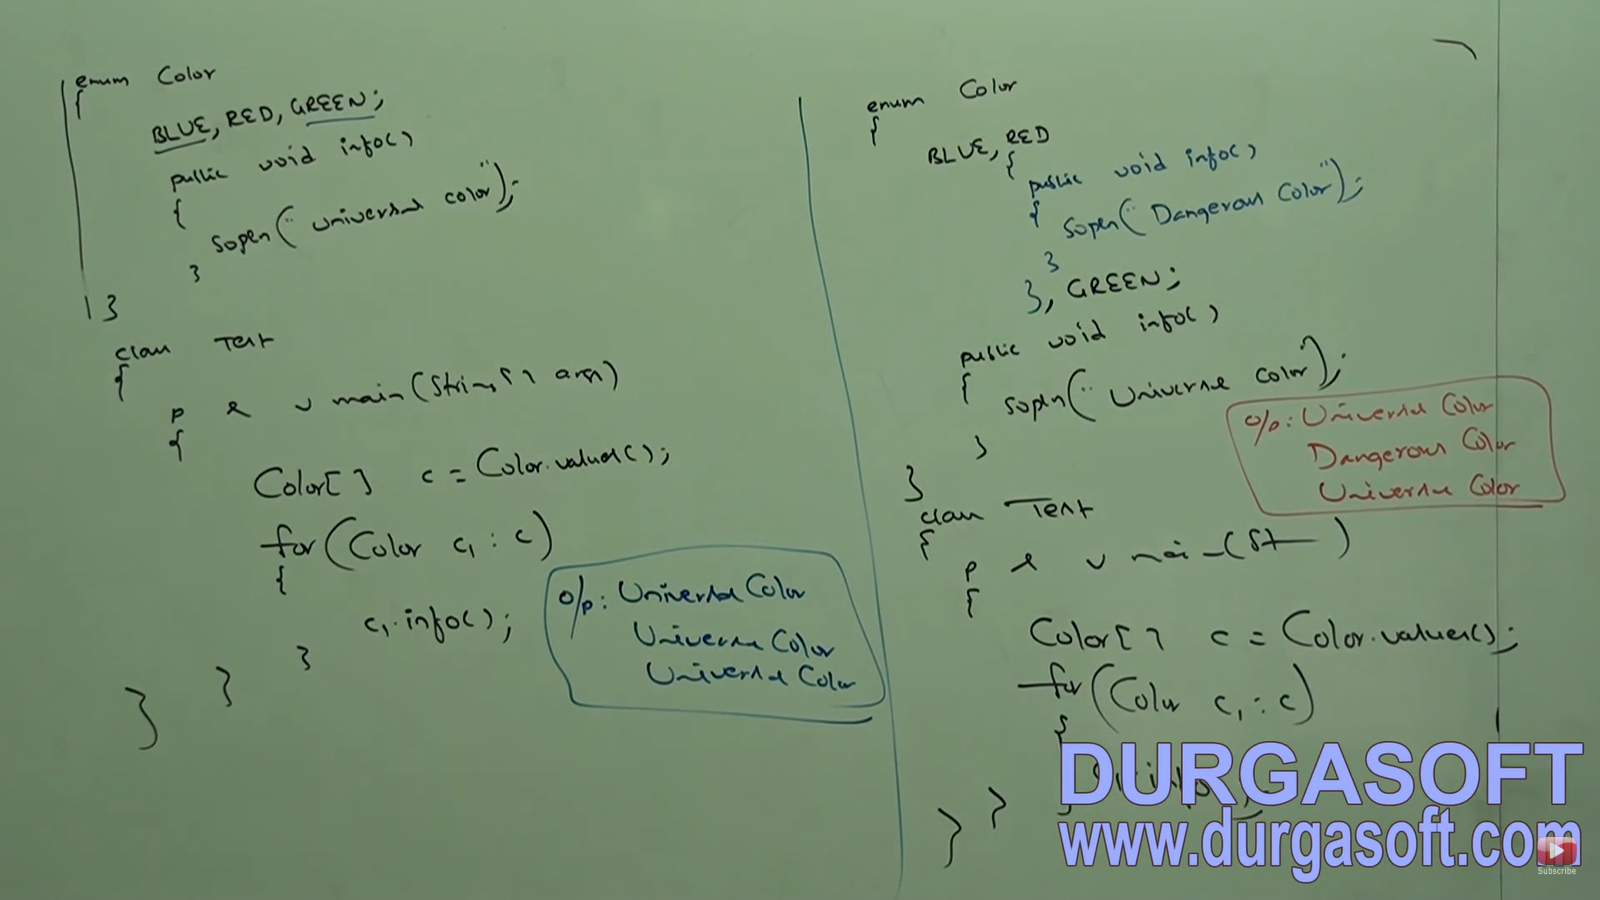 enum Color
{
BLUE, RED, GREEN;
public void info()
{
sopln("Universal color");
}
}
class Test
{
p s v main(String[] args)
{
Color[] c = Color.values();
for(Color c1 : c)
{
c1.info();
}
}
}
o/p: Universal Color
Universal Color
Universal Color
enum Color
{
BLUE, RED
{
public void info()
{
sopln("Dangerous Color");
}
}, GREEN;
public void info()
{
sopln("Universal Color");
}
}
class Test
{
p s v main(St )
{
Color[] c = Color.values();
for(Color c1 : c)
{
}
}
}
o/p: Universal Color
Dangerous Color
Universal Color
DURGASOFT
www.durgasoft.com
Subscribe